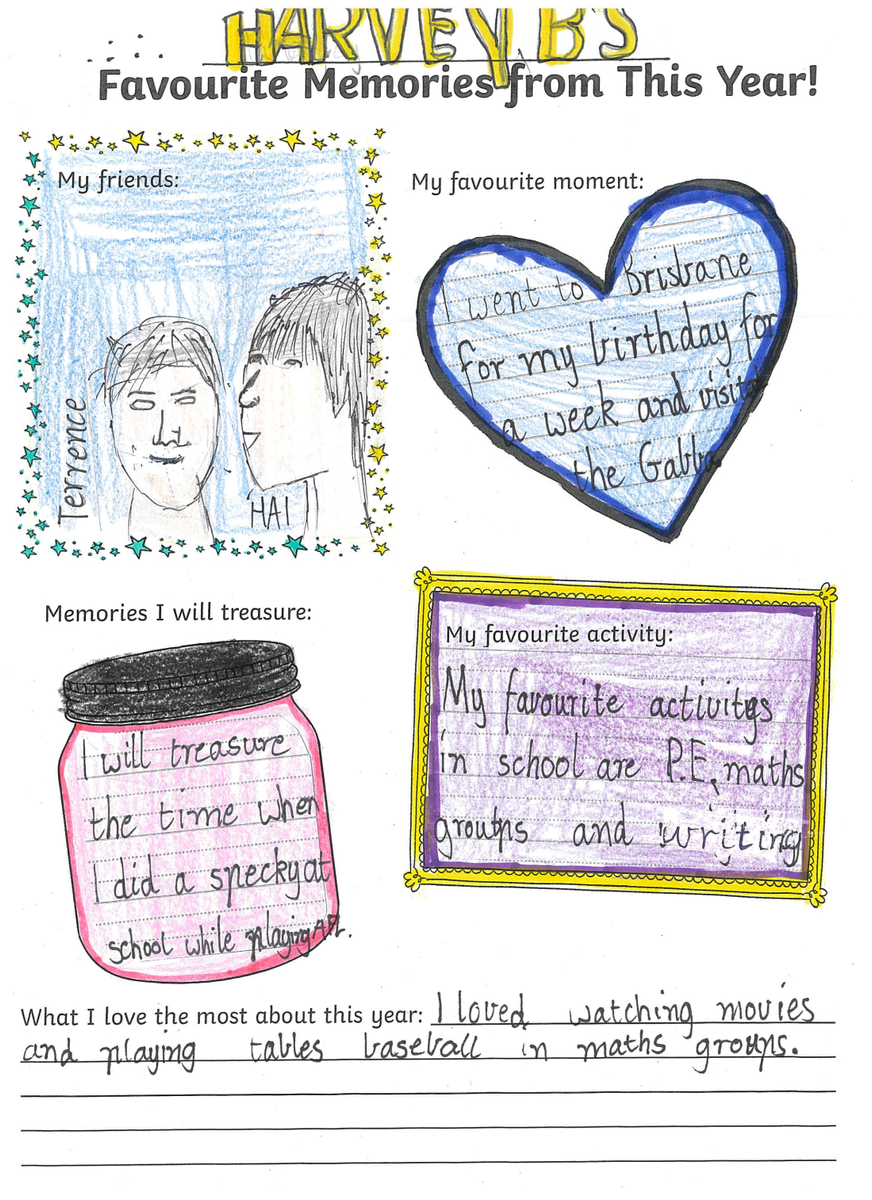 HARVEY B'S
Favourite Memories from This Year!
My friends:
Terrence
HAI
My favourite moment:
I went to Brisbane
for my birthday for
a week and visited
the Gabba
Memories I will treasure:
I will treasure
the time when
I did a specky at
school while playing AFL.
My favourite activity:
My favourite activitys
in school are P.E, maths
groups and writing
What I love the most about this year: I loved watching movies
and playing tables baseball in maths groups.